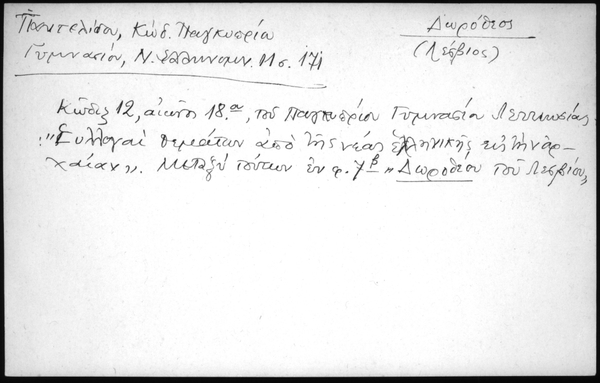 Παντελίδου, Κώδ. Παγκυπρίου
Γυμνασίου, Ν. Ἑλληνομν. 11 σ. 171
Δωρόθεος
(Λέσβιος)
Κῶδιξ 12, αἰῶνος 18.α, τοῦ Παγκυπρίου Γυμνασίου Λευκωσίας.
"Συλλογαὶ θεμάτων ἀπὸ τῆς νέας ἑλληνικῆς εἰς τὴν ἀρ-
χαίαν". Μεταξὺ τούτων ἐν φ. 7β "Δωροθέου τοῦ Λεσβίου"